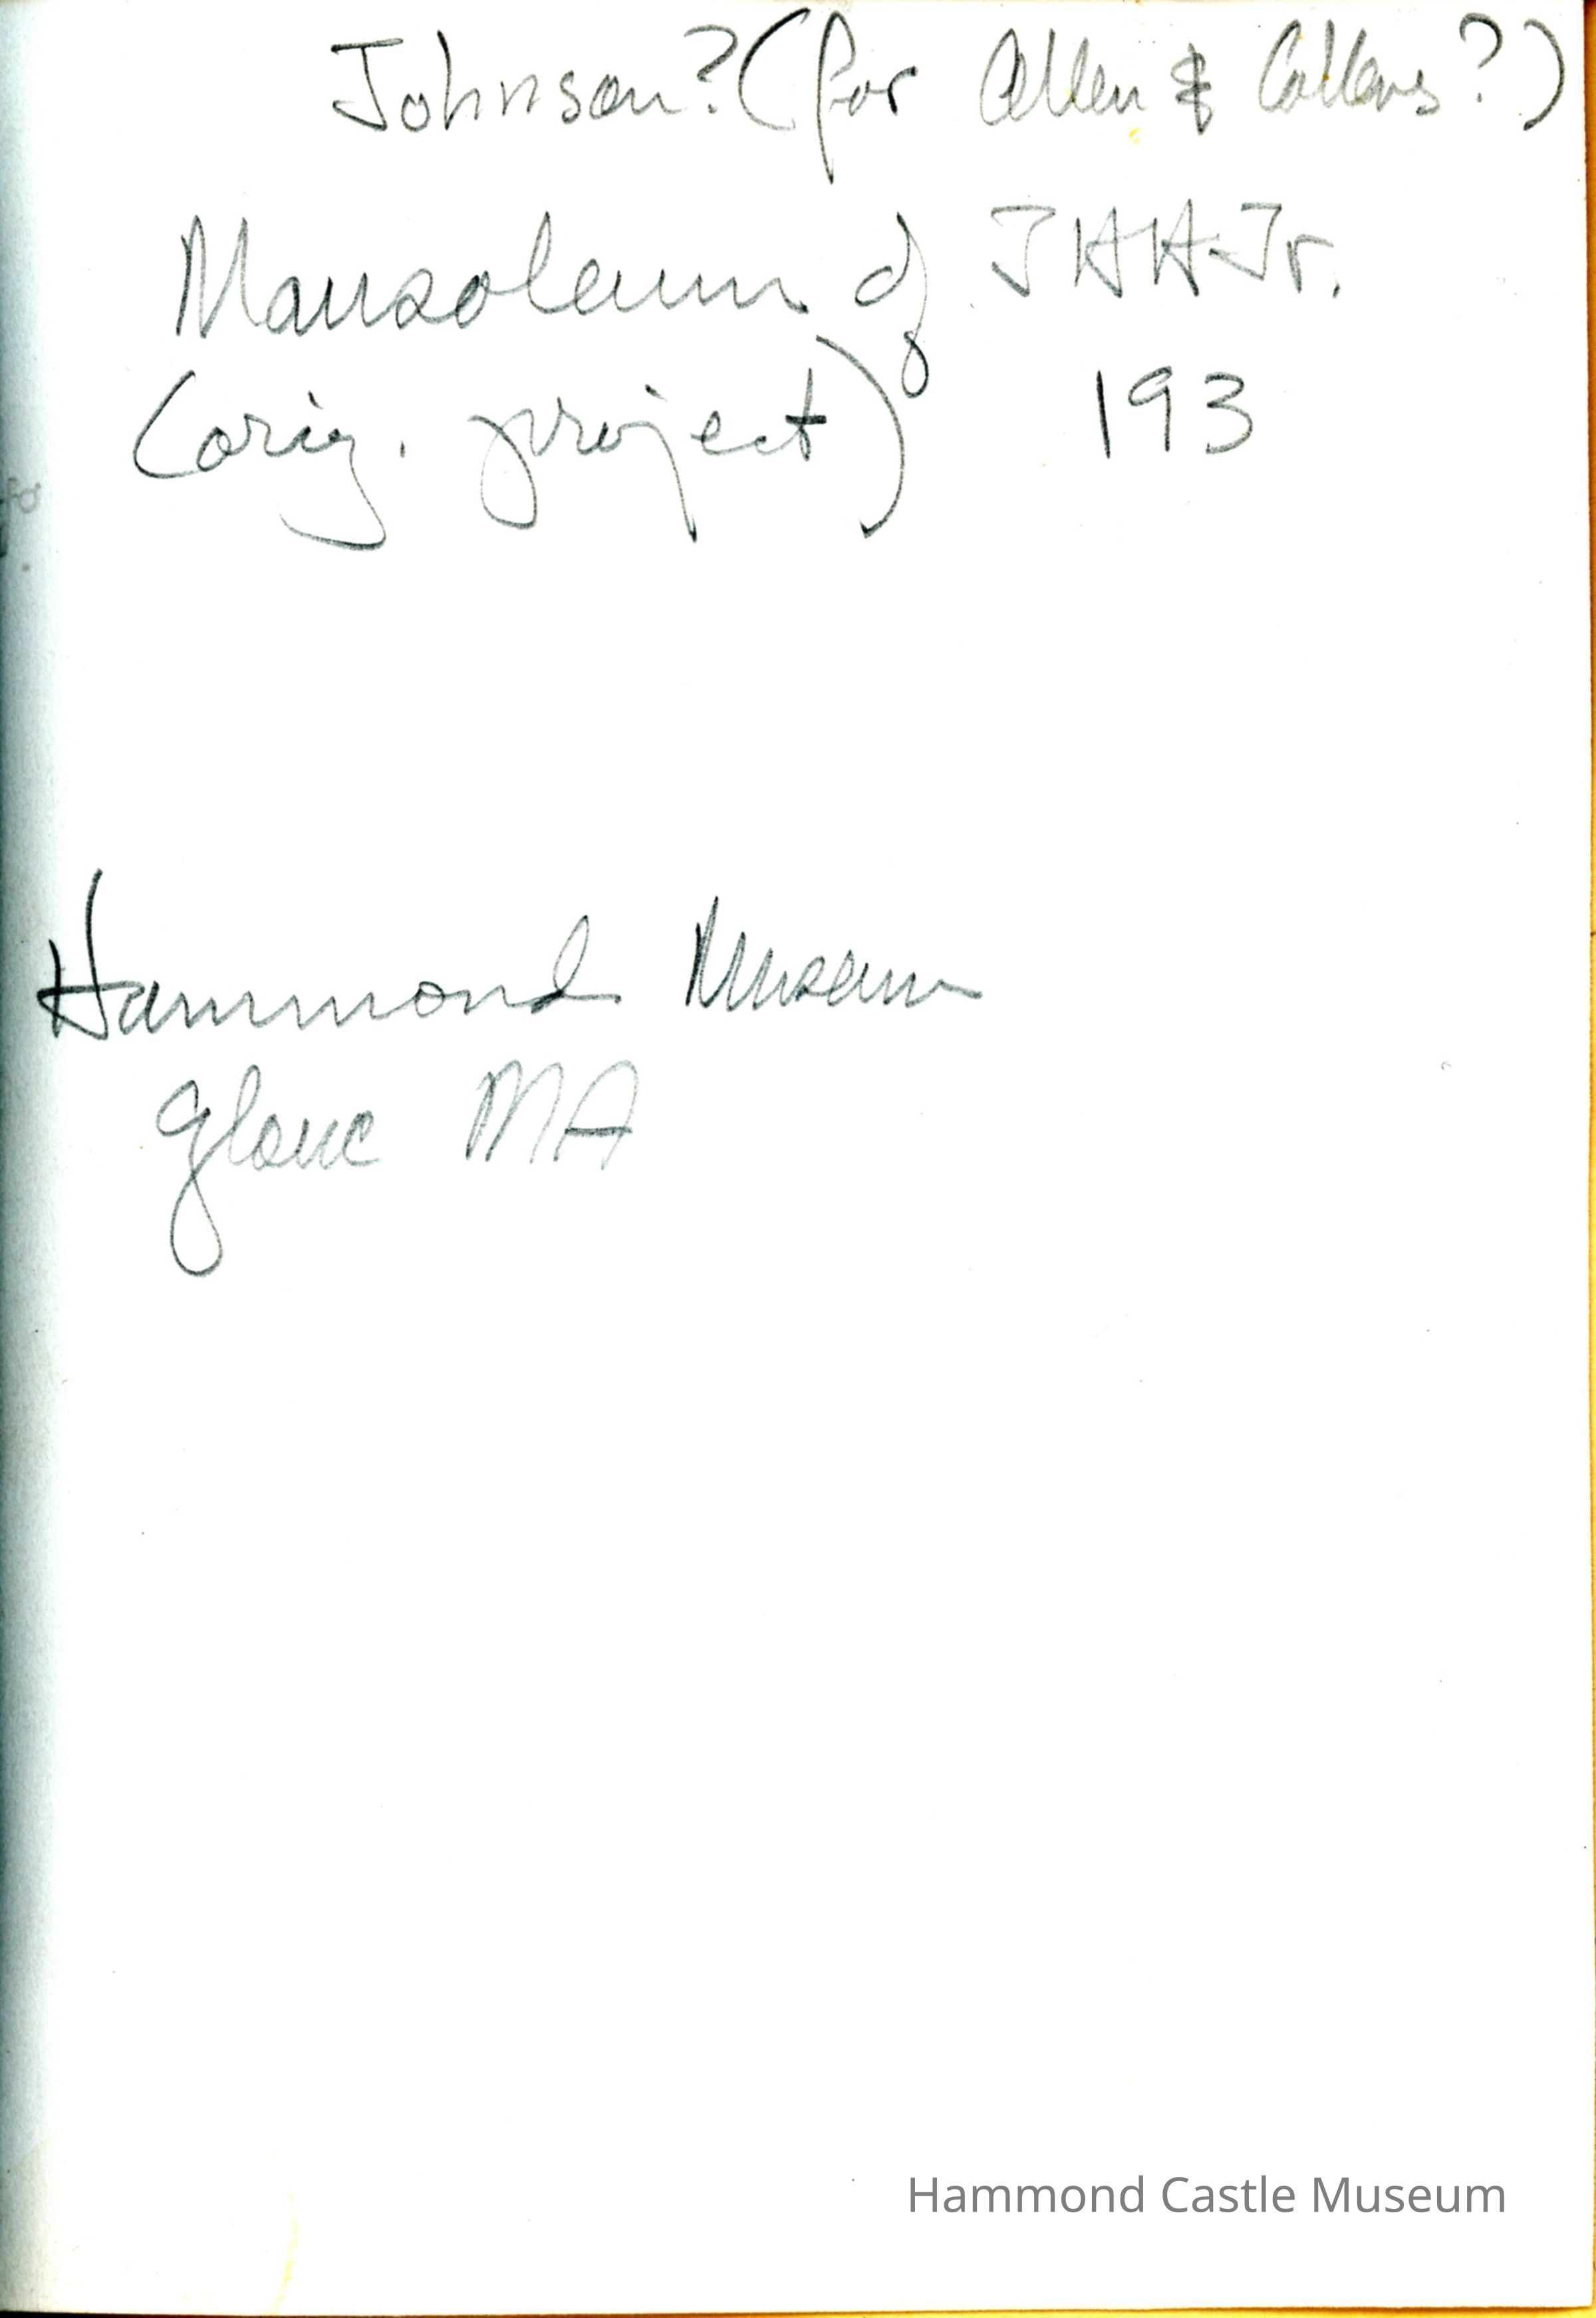 Johnson? (for Allen & Collens?)
Mausoleum of JHH Jr.
(orig. project) 193
Hammond Museum
Glouc MA
Hammond Castle Museum